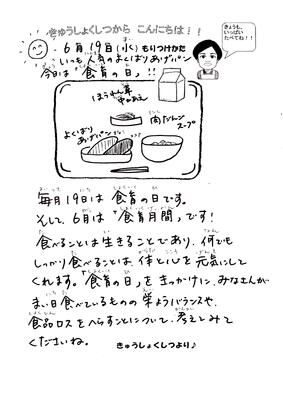 きゅうしょくしつから こんにちは!!
きょうも、
いっぱい
たべてね!!
6月19日(水)もりつけかた
いつも人気のよくばりあげパン
今日は『食育の日』!!
ほうれん草
中かあえ
肉だんご
スープ
よくばり
あげパン
毎月19日は『食育の日』です。
そして、6月は『食育月間』です!
食べることは生きることであり、何でも
しっかり食べることは、体と心を元気にして
くれます。『食育の日』をきっかけに、みなさんが
まい日食べているものの栄ようバランスや、
食品ロスをへらすことについて、考えてみて
くださいね。
きゅうしょくしつより♪